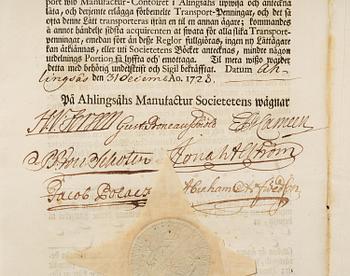 port wid Manufactur-Contoiret i Alingsåhs upwisa och anteckna
låta, och derjemte erlägga förbemelte Transport-Penningar, och det så
ofta denne Lått transporteras ifrån en til en annan ägare; kommandes
å annor händelse sidsta acquirenten at swara för alla slika Transport-
penningar, emedan förr än desse Reglor fullgöras, ingen ny Lått-ägare
kan ätkiännas, eller uti Societetens Böcker antecknas, mindre någon
utdelnings Portion få lyffta och emottaga. Til mera wisso warder
detta med behörig underskrift och Sigil bekräfftat. Datum Ah-
lingsåhs den 31 Decemb. Ao. 1728.
På Ahlingsåhs Manufactur Societetens wägnar
Jonas Alström
Jacob Polack
Abraham